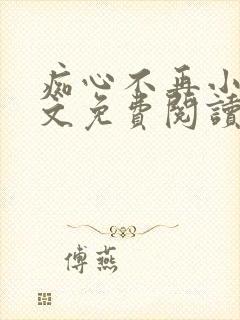 痴心不再小
文免費閱讀
傅燕